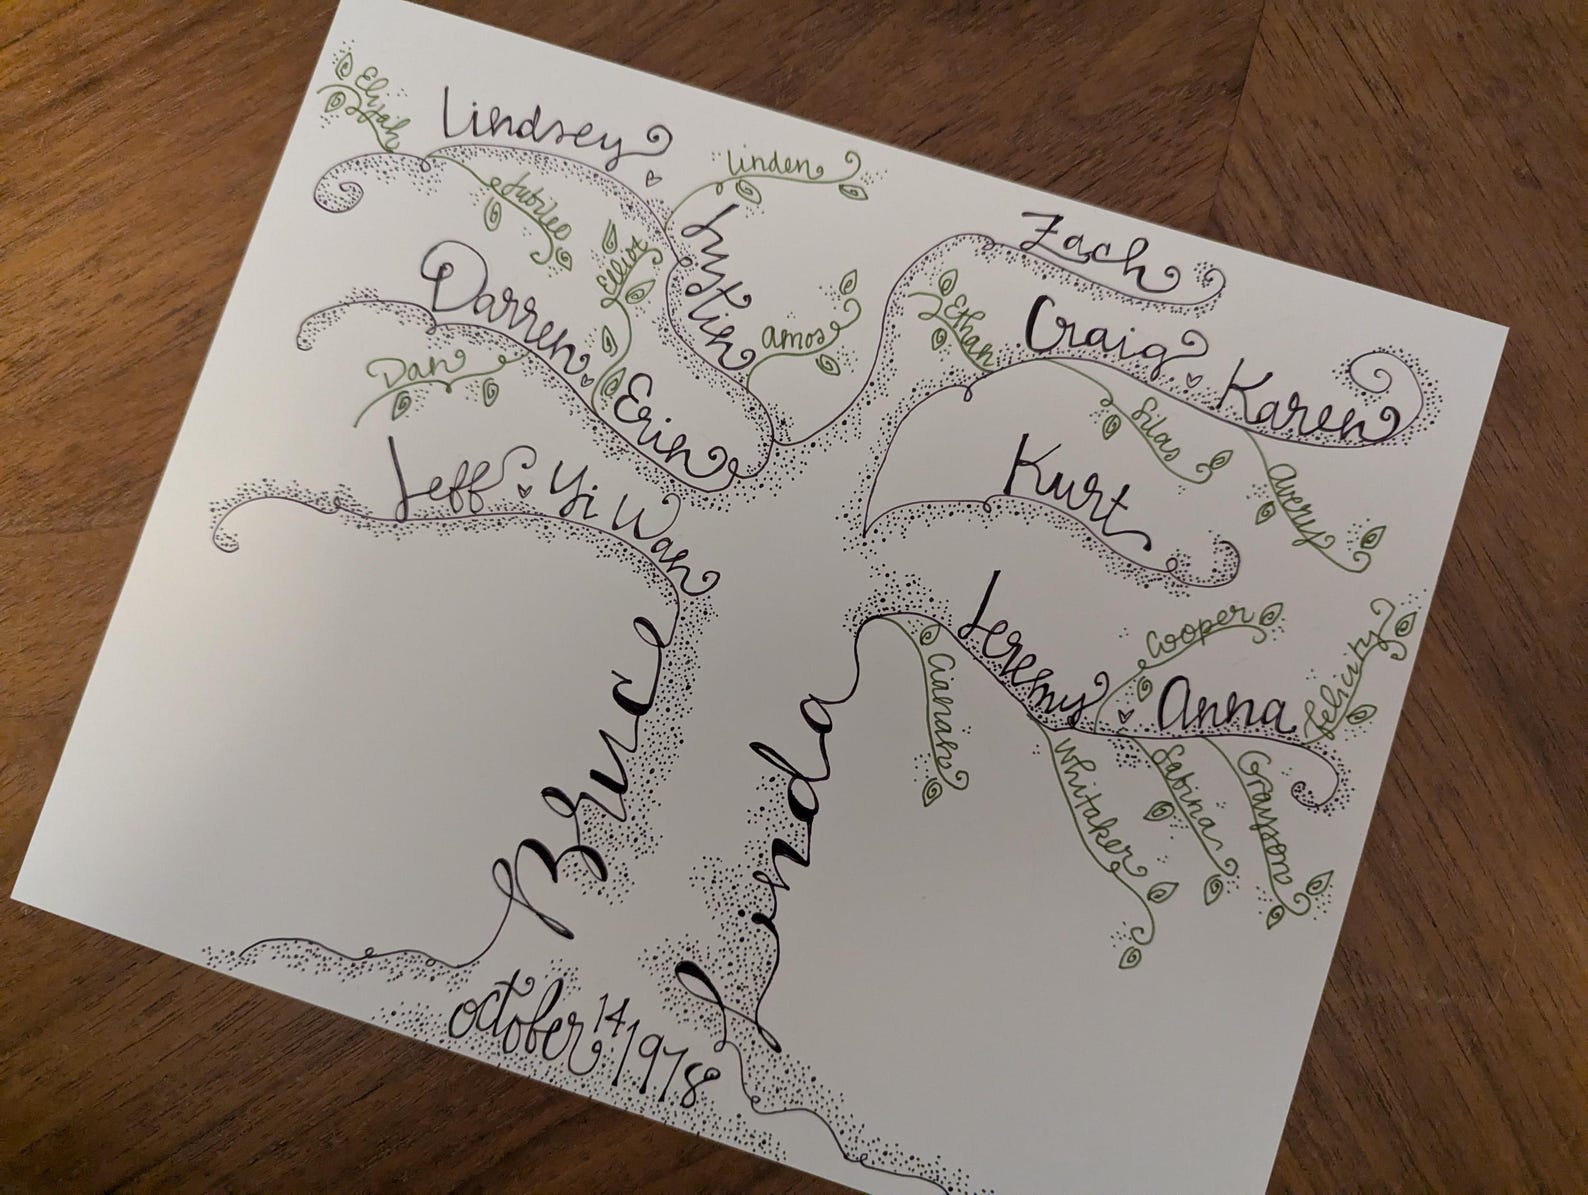 Elijah
Lindsey
Jubilee
Linden
Justin
Elliot
Amos
Darren
Erin
Dan
Jeff Yi Wan
Zach
Ethan
Craig Karen
Silas
Avery
Kurt
Jeremy Anna
Cooper
Felicity
Cianan
Whitaker
Sabina
Grayson
Bruce
Linda
October 14 1978